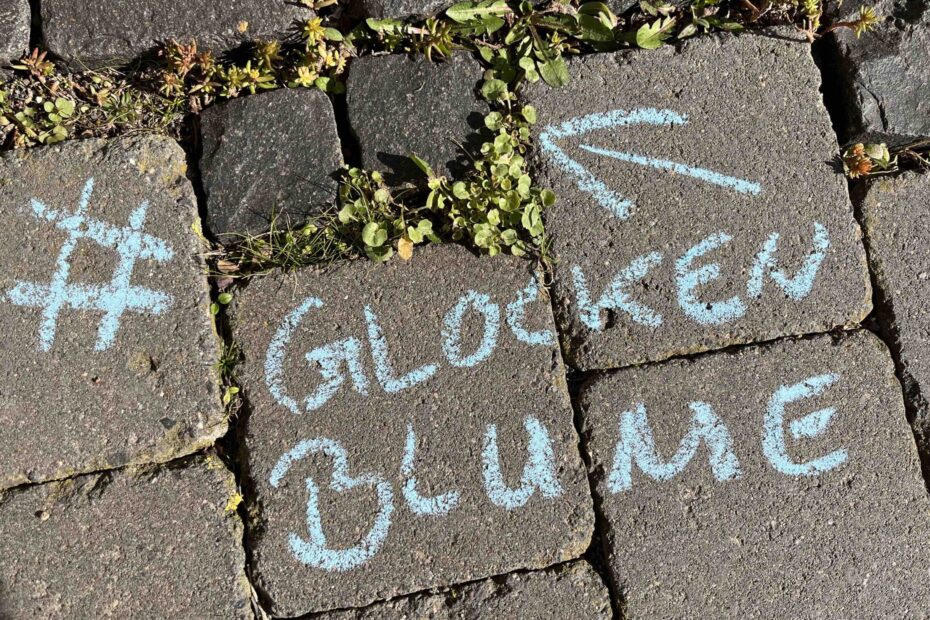 # GLOCKEN
BLUME